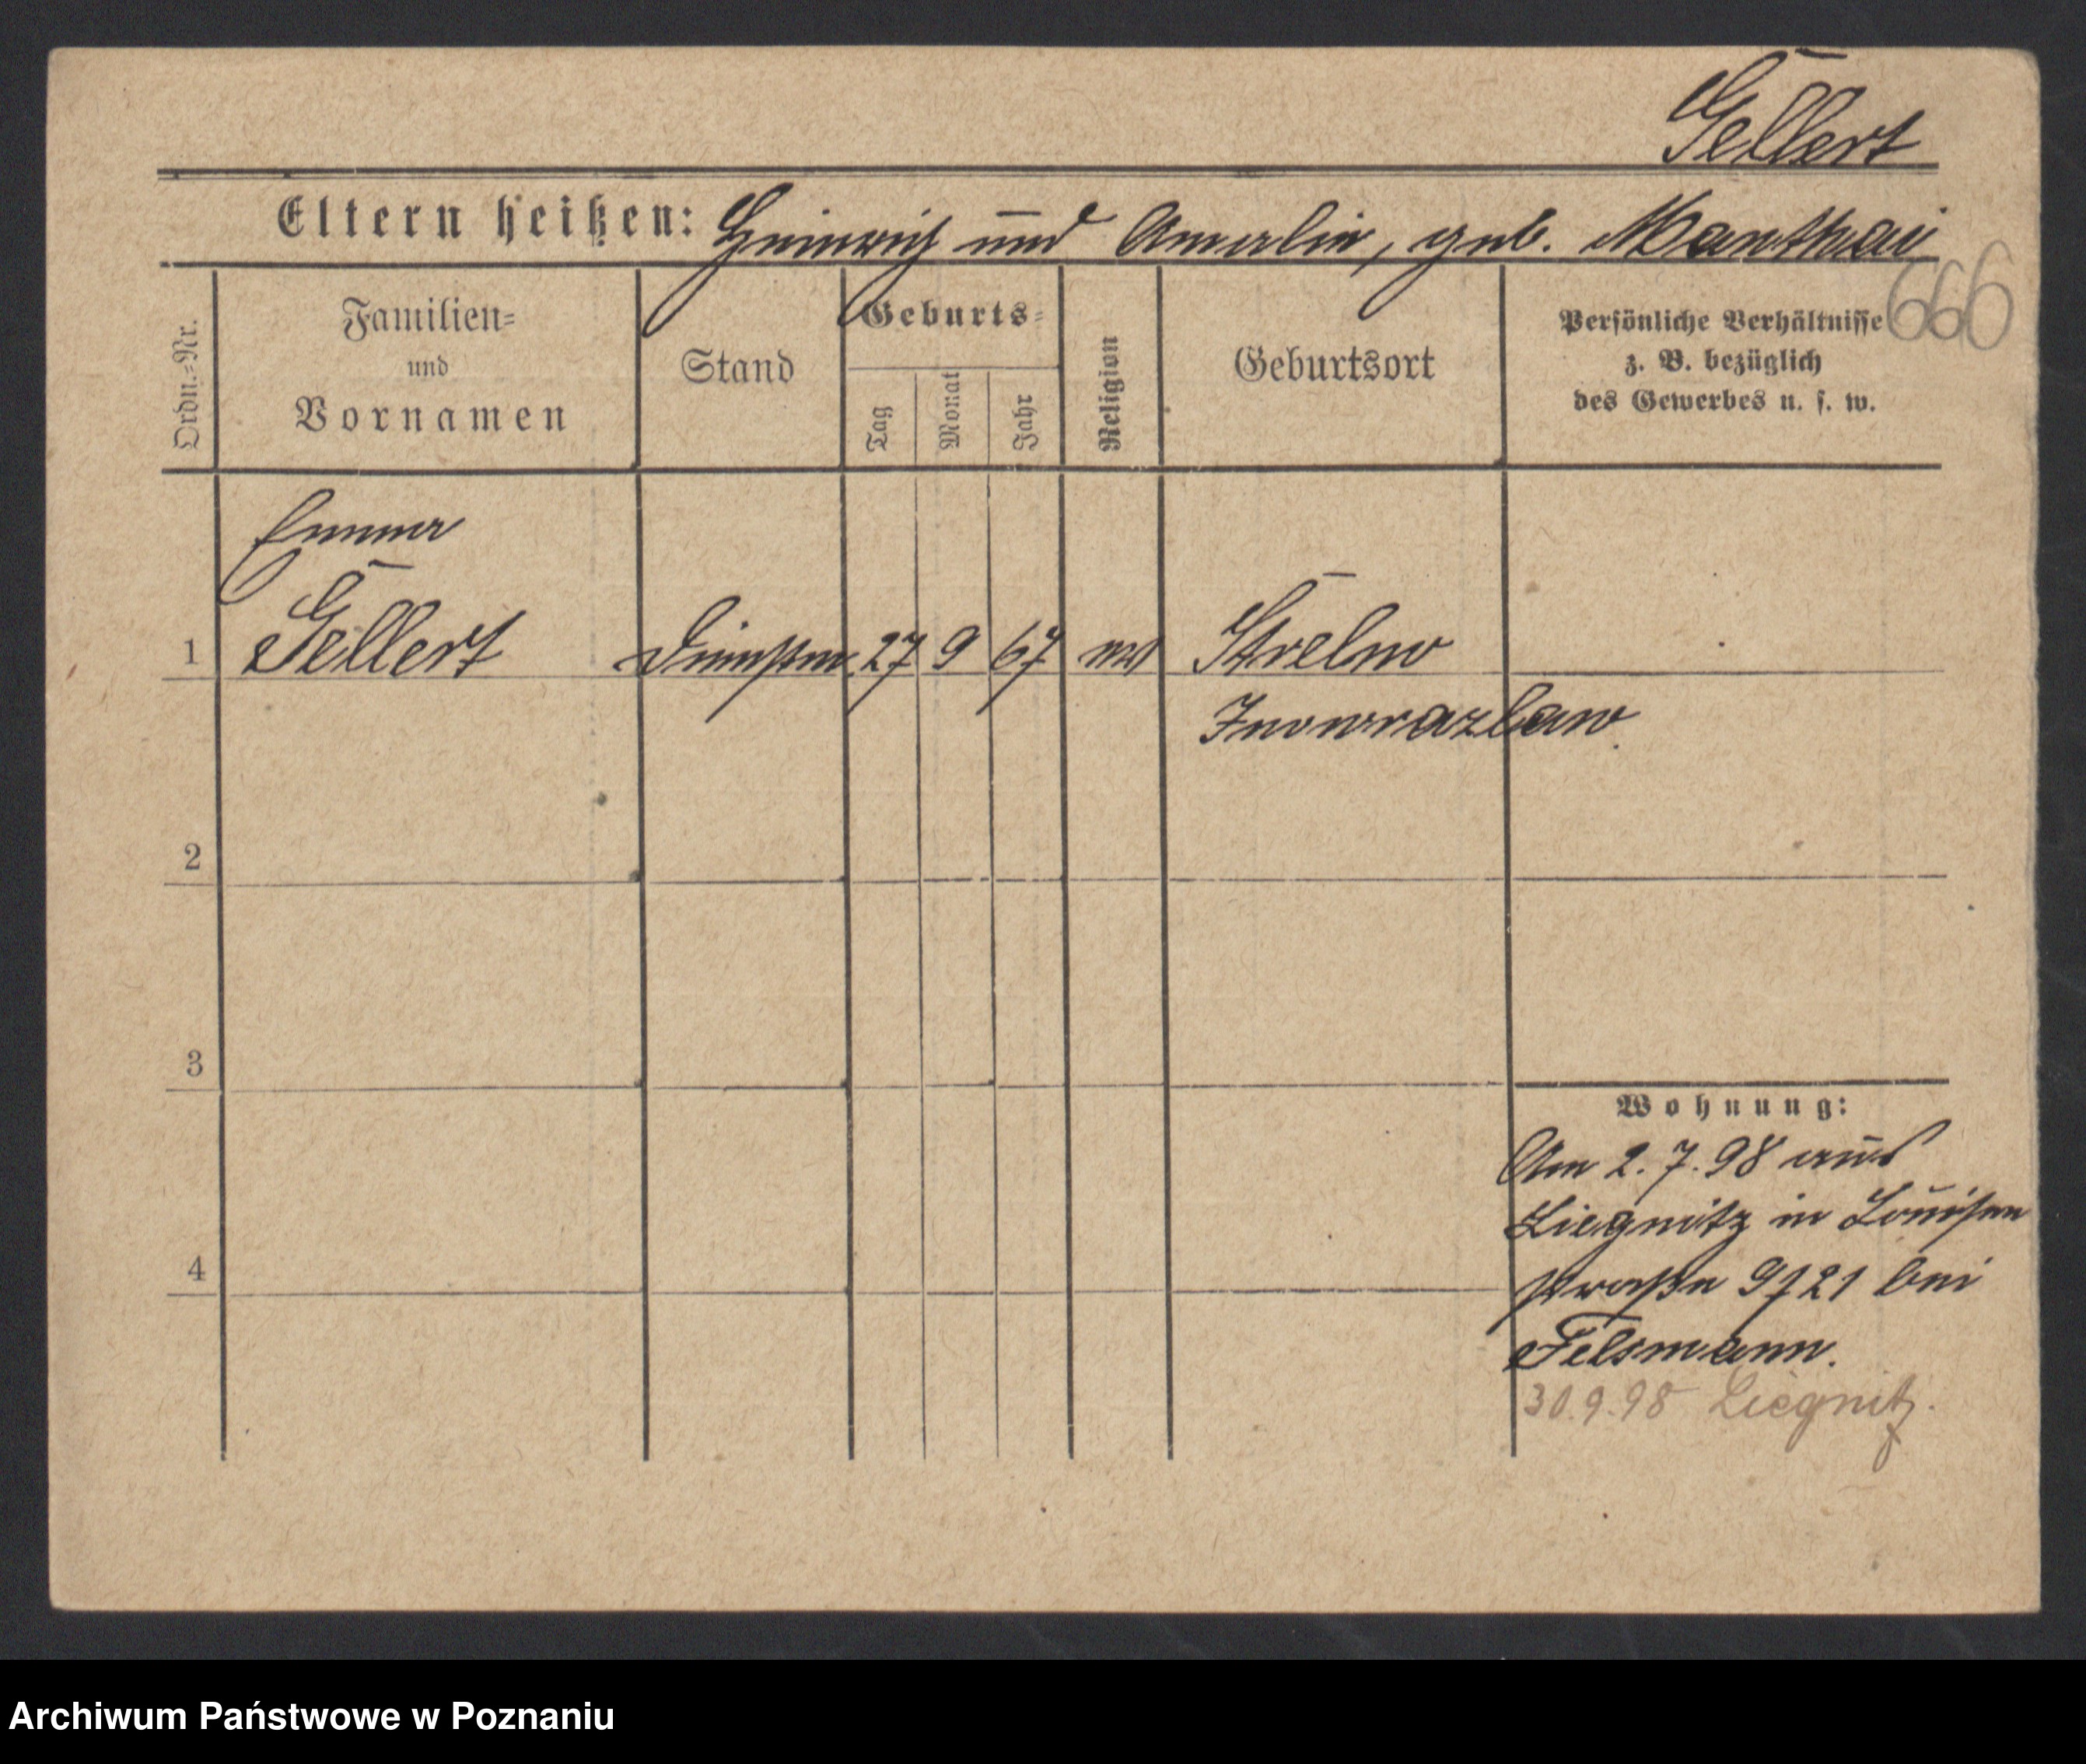 Gellert
Eltern heißen: Heinrich und Amalie, geb. Manthai
666
Ordn.=Nr.
Familien=
und
Vornamen
Stand
Geburts=
Tag
Monat
Jahr
Religion
Geburtsort
Persönliche Verhältnisse
z. B. bezüglich
des Gewerbes u. s. w.
Emma
1 Gellert 27 9 67 ev Strelno
Inowrazlaw
2
3
4
Wohnung:
Am 2.7.98 aus
Liegnitz in Louisen
straße 9/21 bei
Felsmann.
30.9.98 Liegnitz.
Archiwum Państwowe w Poznaniu